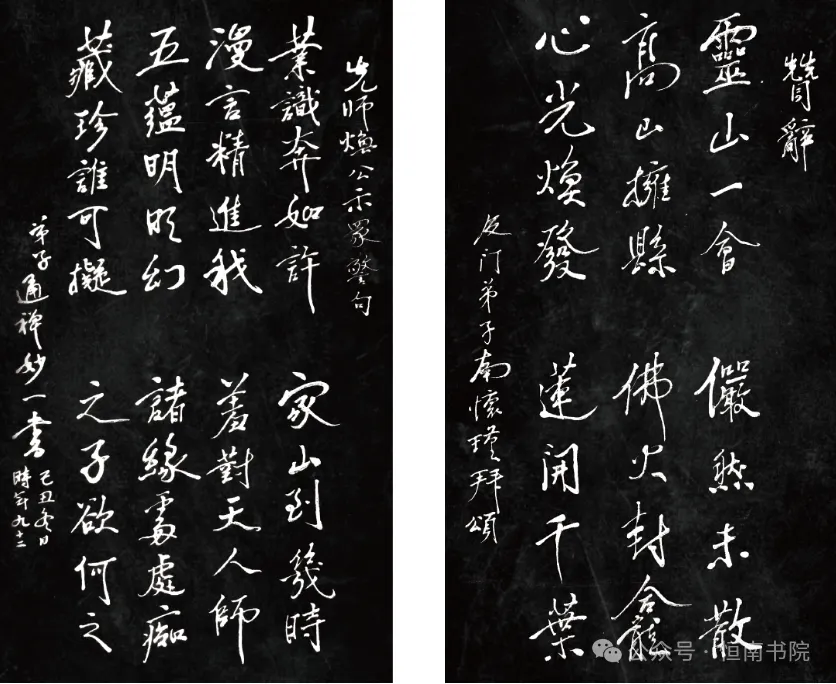 贊辭
靈山一會 儼然未散
高山擁縣 佛火封龕
心光煥發 蓮開千葉
及门弟子南懷瑾拜頌
先師煥公示眾警句
業識奔如許 家山到幾時
漫言精進我 羞對天人師
五蘊明明幻 諸緣處處痴
藏珍誰可擬 之子欲何之
弟子通禅妙一書
己丑冬日
時年九十三
公众号 · 恒南书院